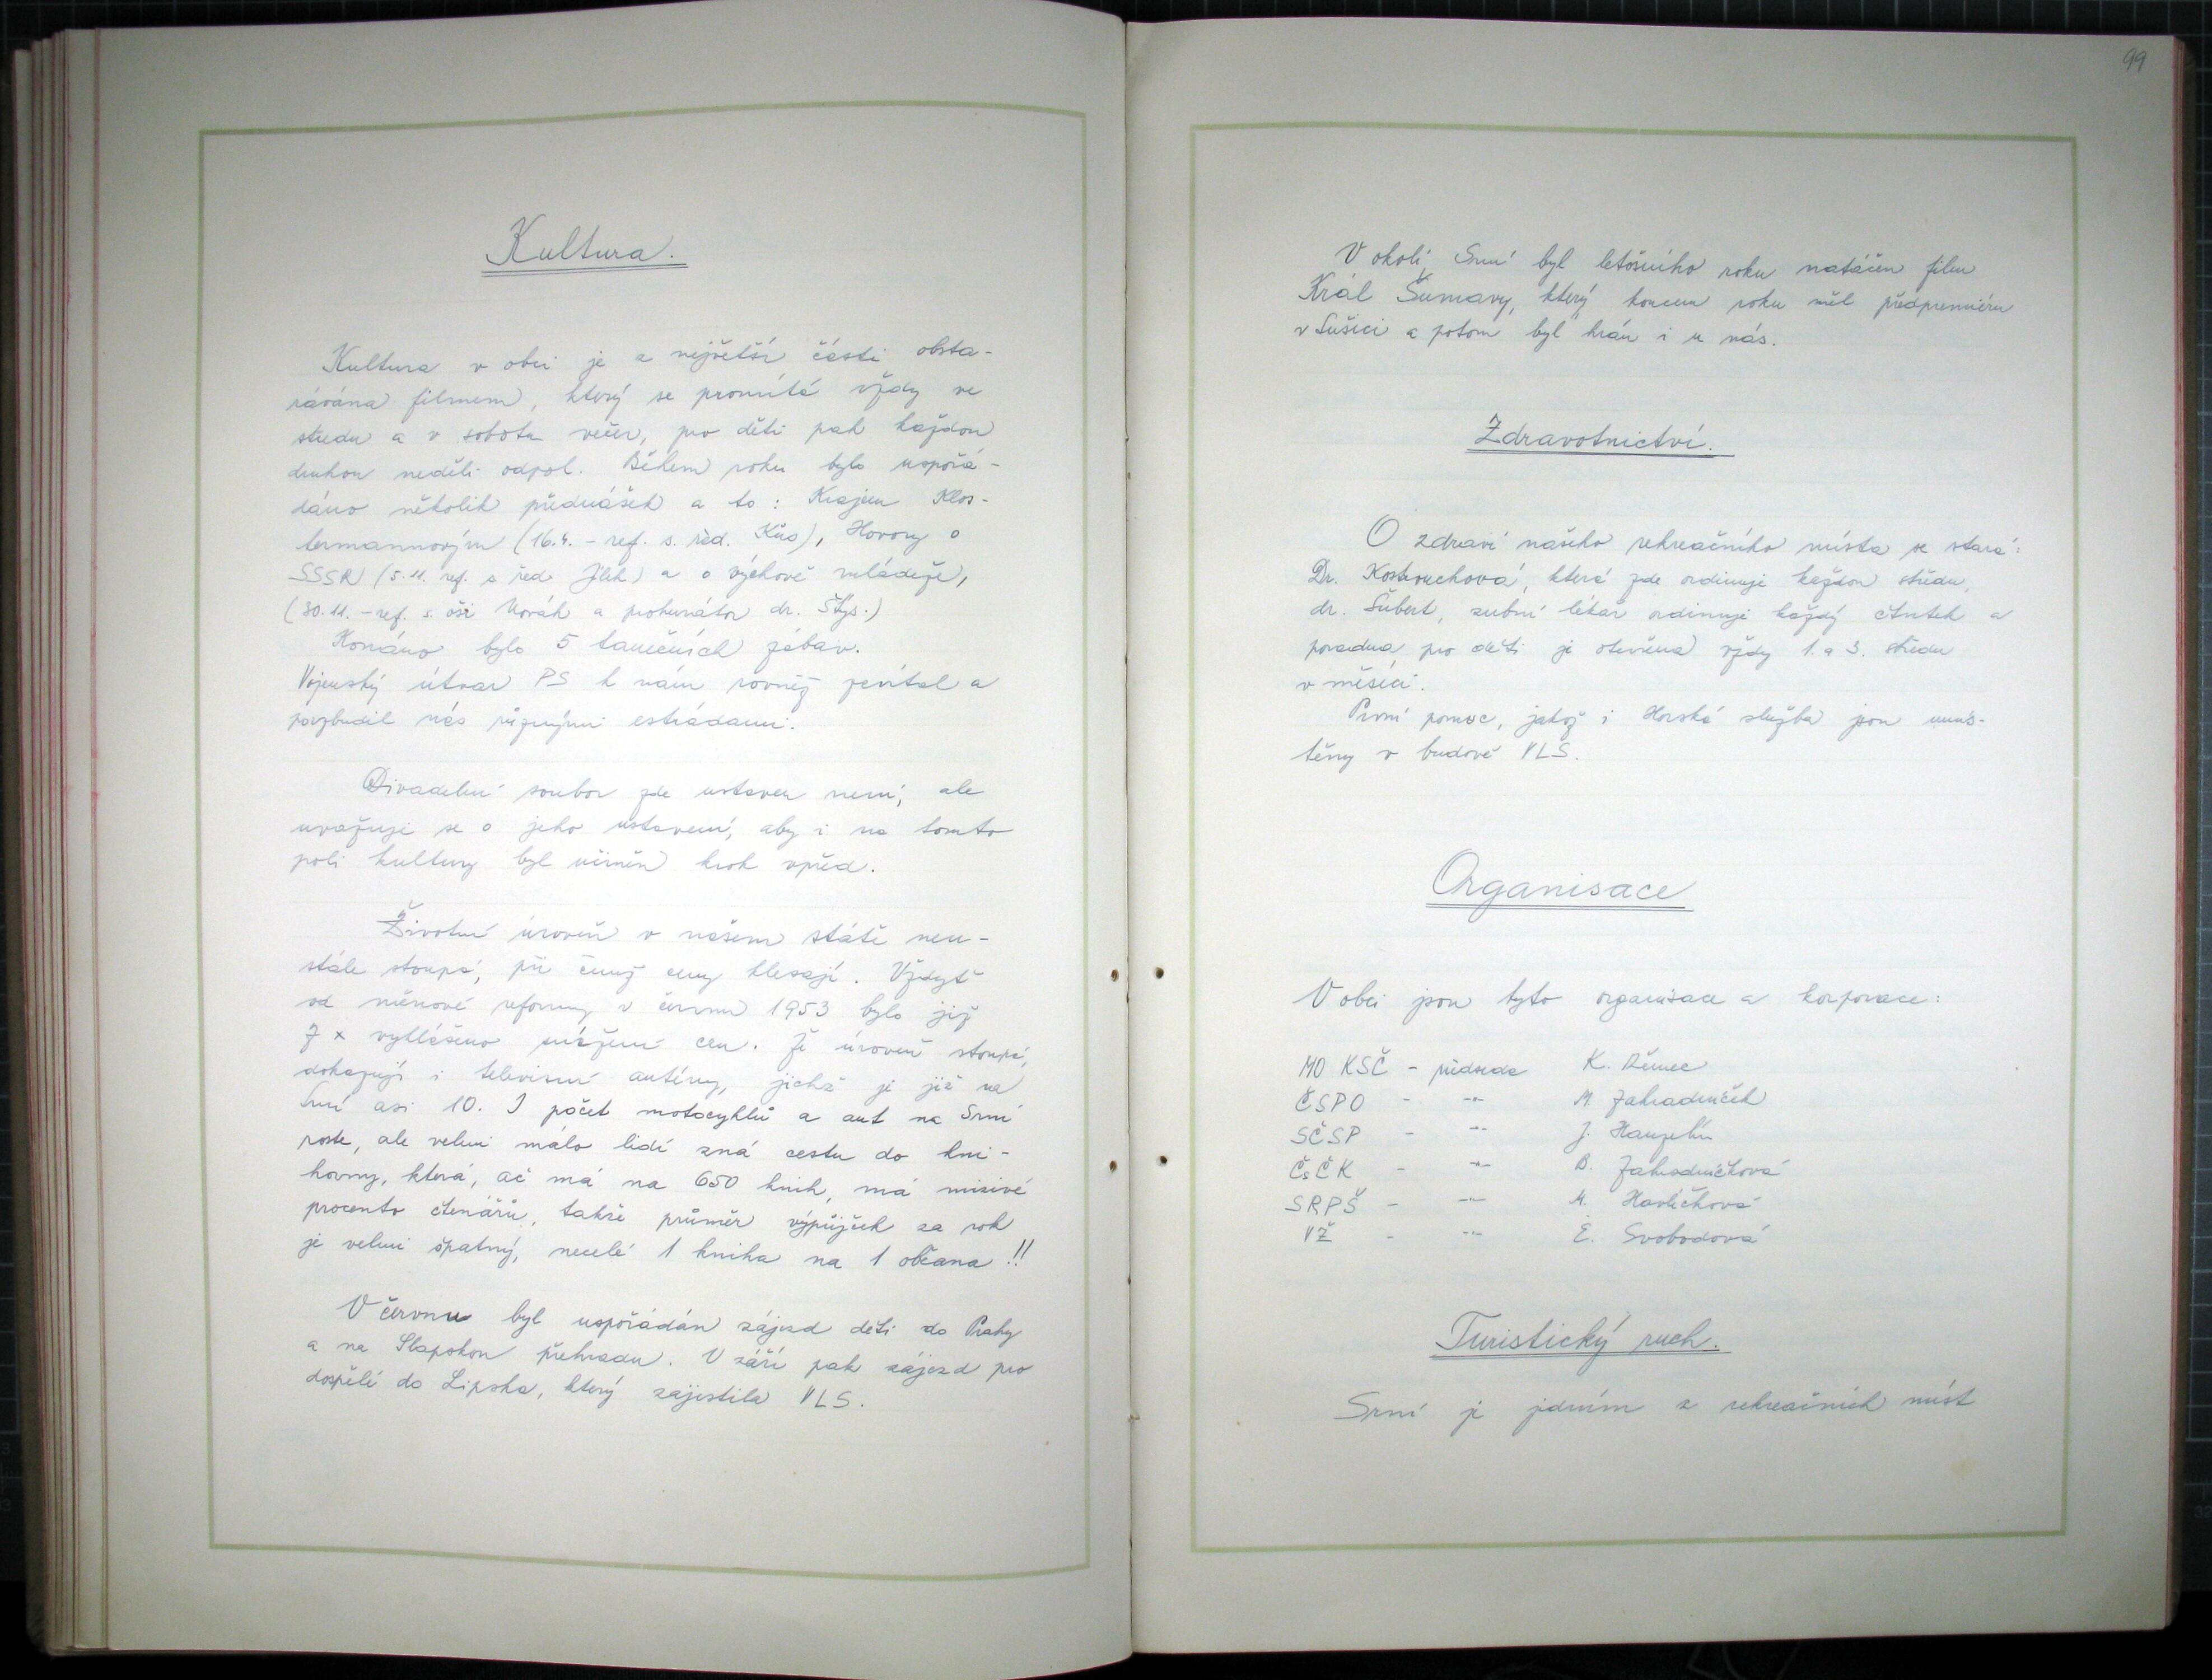 Kultura.
Kultura v obci je z největší části obsta-
rávána filmem, který se promítá vždy ve
středu a v sobotu večer, pro děti pak každou
druhou neděli odpol. Během roku bylo uspořá-
dáno několik přednášek a to: Krajem Klos-
termannovým (16.4. - ref. s. řed. Kůs), Hovory o
SSSR (5.11. ref. s. řed. Jílek) a o výchově mládeže,
(30.11. - ref. s. oši Novák a prokurátor dr. Štys.)
Konáno bylo 5 tanečních zábav.
Vojenský útvar PS k nám rovněž zavítal a
povzbudil nás různými estrádami.
Divadelní soubor zde ustaven není, ale
uvažuje se o jeho ustavení, aby i na tomto
poli kultury byl učiněn krok vpřed.
Životní úroveň v našem státě neu-
stále stoupá, při čemž ceny klesají. Vždyť
od měnové reformy v červnu 1953 bylo již
7 x vyhlášeno snížení cen. Že úroveň stoupá,
dokazují i televisní antény, jichž je již na
Srní asi 10. I počet motocyklů a aut na Srní
roste, ale velmi málo lidí zná cestu do kni-
hovny, která, ač má na 650 knih, má mizivé
procento čtenářů, takže průměr výpůjček za rok
je velmi špatný, necelé 1 kniha na 1 občana!!
V červnu byl uspořádán zájezd dětí do Prahy
a na Slapskou přehradu. V září pak zájezd pro
dospělé do Lipska, který zajistila VLS.
99
V okolí Srní byl letošního roku natáčen film
Král Šumavy, který koncem roku měl předpremiéru
v Sušici a potom byl hrán i u nás.
Zdravotnictví.
O zdraví našeho rekreačního místa se stará:
Dr. Kostrouchová, která zde ordinuje každou středu,
dr. Šubert, zubní lékař ordinuje každý čtvrtek a
poradna pro děti je otevřena vždy 1. a 3. středu
v měsíci.
První pomoc, jakož i Horská služba jsou umís-
těny v budově VLS.
Organisace
V obci jsou tyto organisace a korporace:
MO KSČ - předseda K. Němec
ČSPO - -"- M. Zahradníček
SČSP - -"- J. Hanzelín
ČsČK - -"- B. Zahradníčková
SRPŠ - -"- M. Havlíčková
VŽ - -"- E. Svobodová
Turistický ruch.
Srní je jedním z rekreačních míst